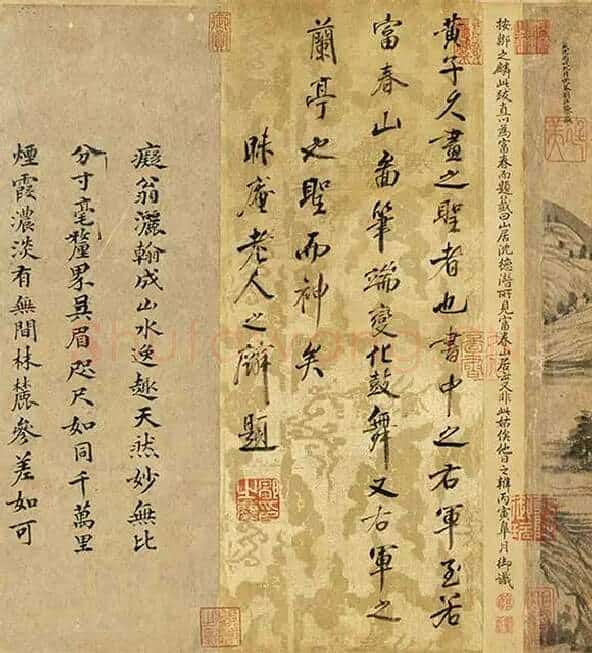 按鄒之麟此跋直以為富春而題籤曰山居沈德潛所見富春山居卷又非此姑俟他日之辨丙寅皋月御識
黃子久畫之聖者也書中之右軍至若
富春山圖筆端變化鼓舞又右軍之
蘭亭也聖而神矣
昧庵老人之麟題
癡翁灑翰成山水逸趣天然妙無比
分寸毫釐具眉咫尺如同千萬里
煙霞濃淡有無間林麓參差如可